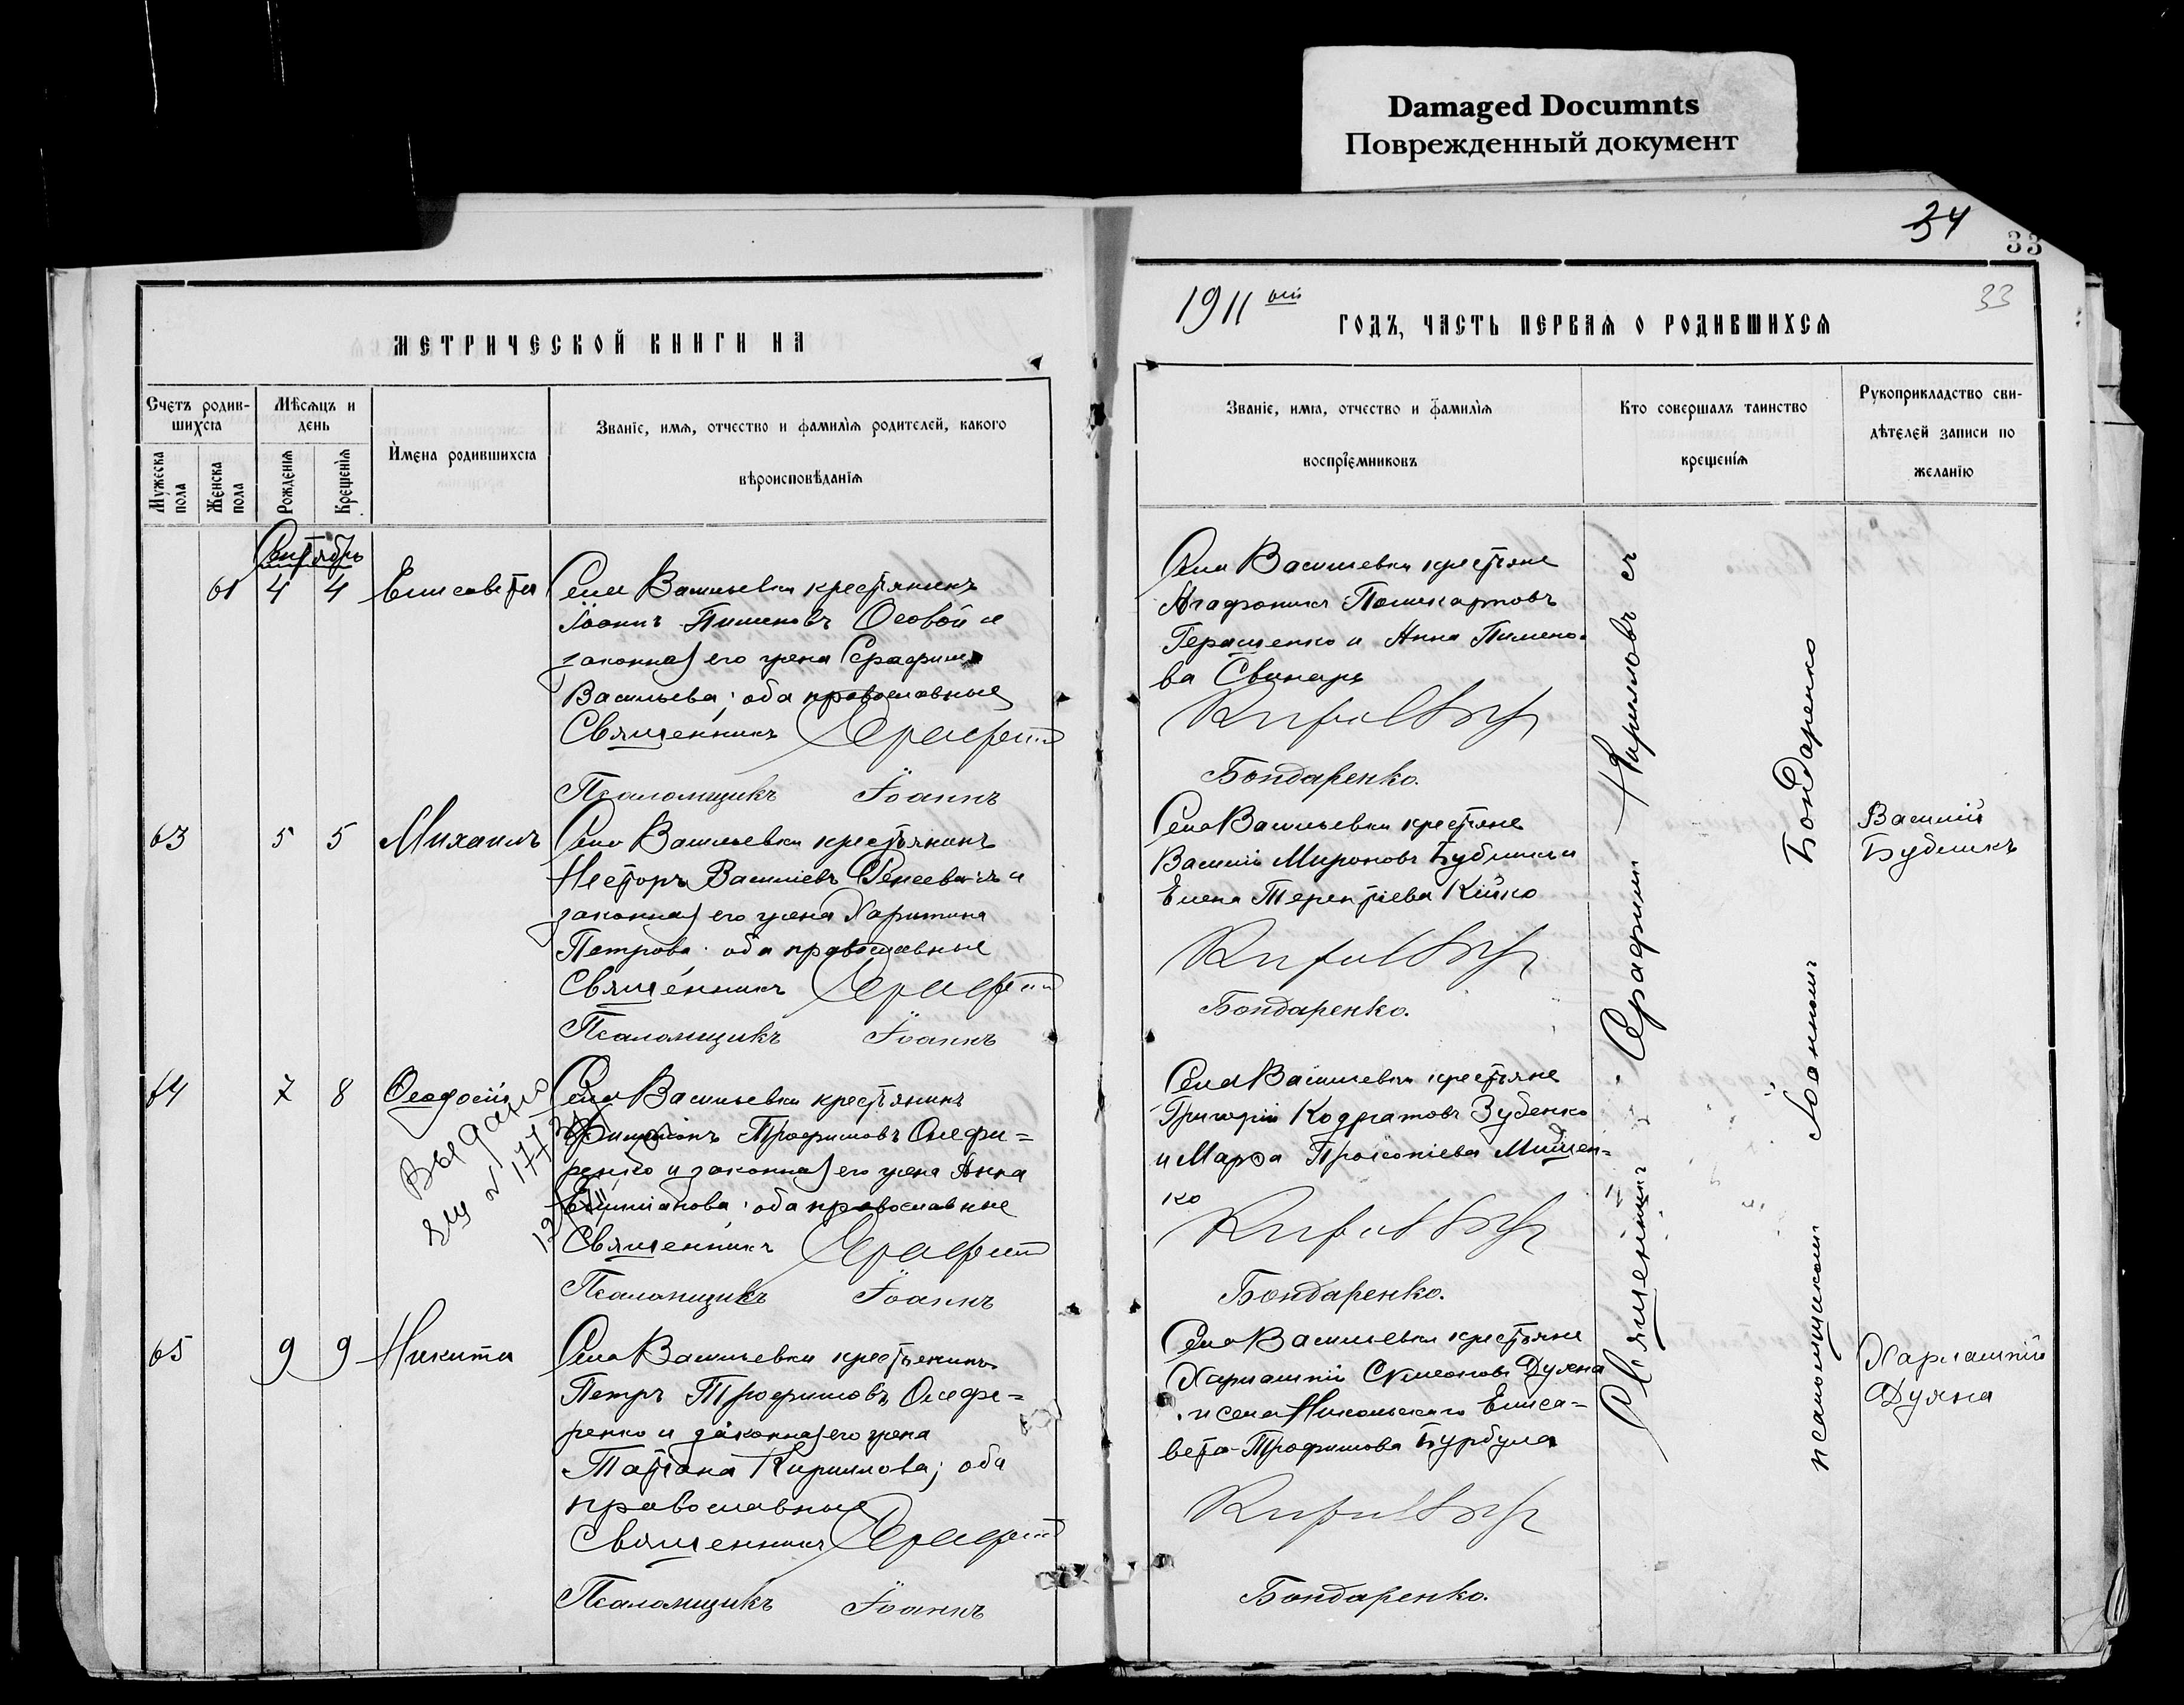 Damaged Documnts
Поврежденный документ
34
33
33
МЕТРИЧЕСКОЙ КНИГИ НА
1911 ый ГОДЪ, ЧАСТЬ ПЕРВАЯ О РОДИВШИХСЯ
Счетъ родившихся
Мужеска пола
Женска пола
Мѣсяцъ и день
Рожденія
Крещенія
Имена родившихся
Званіе, имя, отчество и фамилія родителей, какого
вѣроисповѣданія
Званіе, имя, отчество и фамилія
воспріемниковъ
Кто совершалъ таинство
крещенія
Рукоприкладство сви-
дѣтелей записи по
желанію
Сентябрь
61 4 4 Елисавета
Села Васильевки крестьянинъ
Іоаннъ Пименовъ Осовой и
законная его жена Серафима
Васильева; оба православные
Священникъ Серафим
Псаломщикъ Іоаннъ
Села Васильевки крестьяне
Агафоникъ Поликарповъ
Геращенко и Анна Пимено-
ва Свинарь
Бондаренко.
63 5 5 Михаилъ
Села Васильевки крестьянинъ
Несторъ Василіевъ и
законная его жена Харитина
Петрова; оба православные
Священникъ Серафим
Псаломщикъ Іоаннъ
Села Васильевки крестьяне
Василій Мироновъ Бубликъ и
Елена Терентіева Кійко
Бондаренко.
Василій
Бубликъ
64 7 8 Ѳеодосій
Выдано
Села Васильевки крестьянинъ
Трофимовъ Олефи-
ренко и законная его жена Анна
оба православные
Священникъ Серафим
Псаломщикъ Іоаннъ
Села Васильевки крестьяне
Григорій Кодратовъ Зубенко
и Марѳа Прокопіева Мищен-
ко
Бондаренко.
65 9 9 Никита
Села Васильевки крестьянинъ
Петръ Трофимовъ Олефи-
ренко и законная его жена
Татіана Кириллова; оба
православные
Священникъ Серафим
Псаломщикъ Іоаннъ
Села Васильевки крестьяне
Харлампій Симеоновъ Духна
и села Никольскаго Елиса-
вета Трофимова Бурбула
Бондаренко.
Харлампій
Духна
Священникъ Серафимъ Кирилловъ съ
псаломщикомъ Іоанномъ Бондаренко